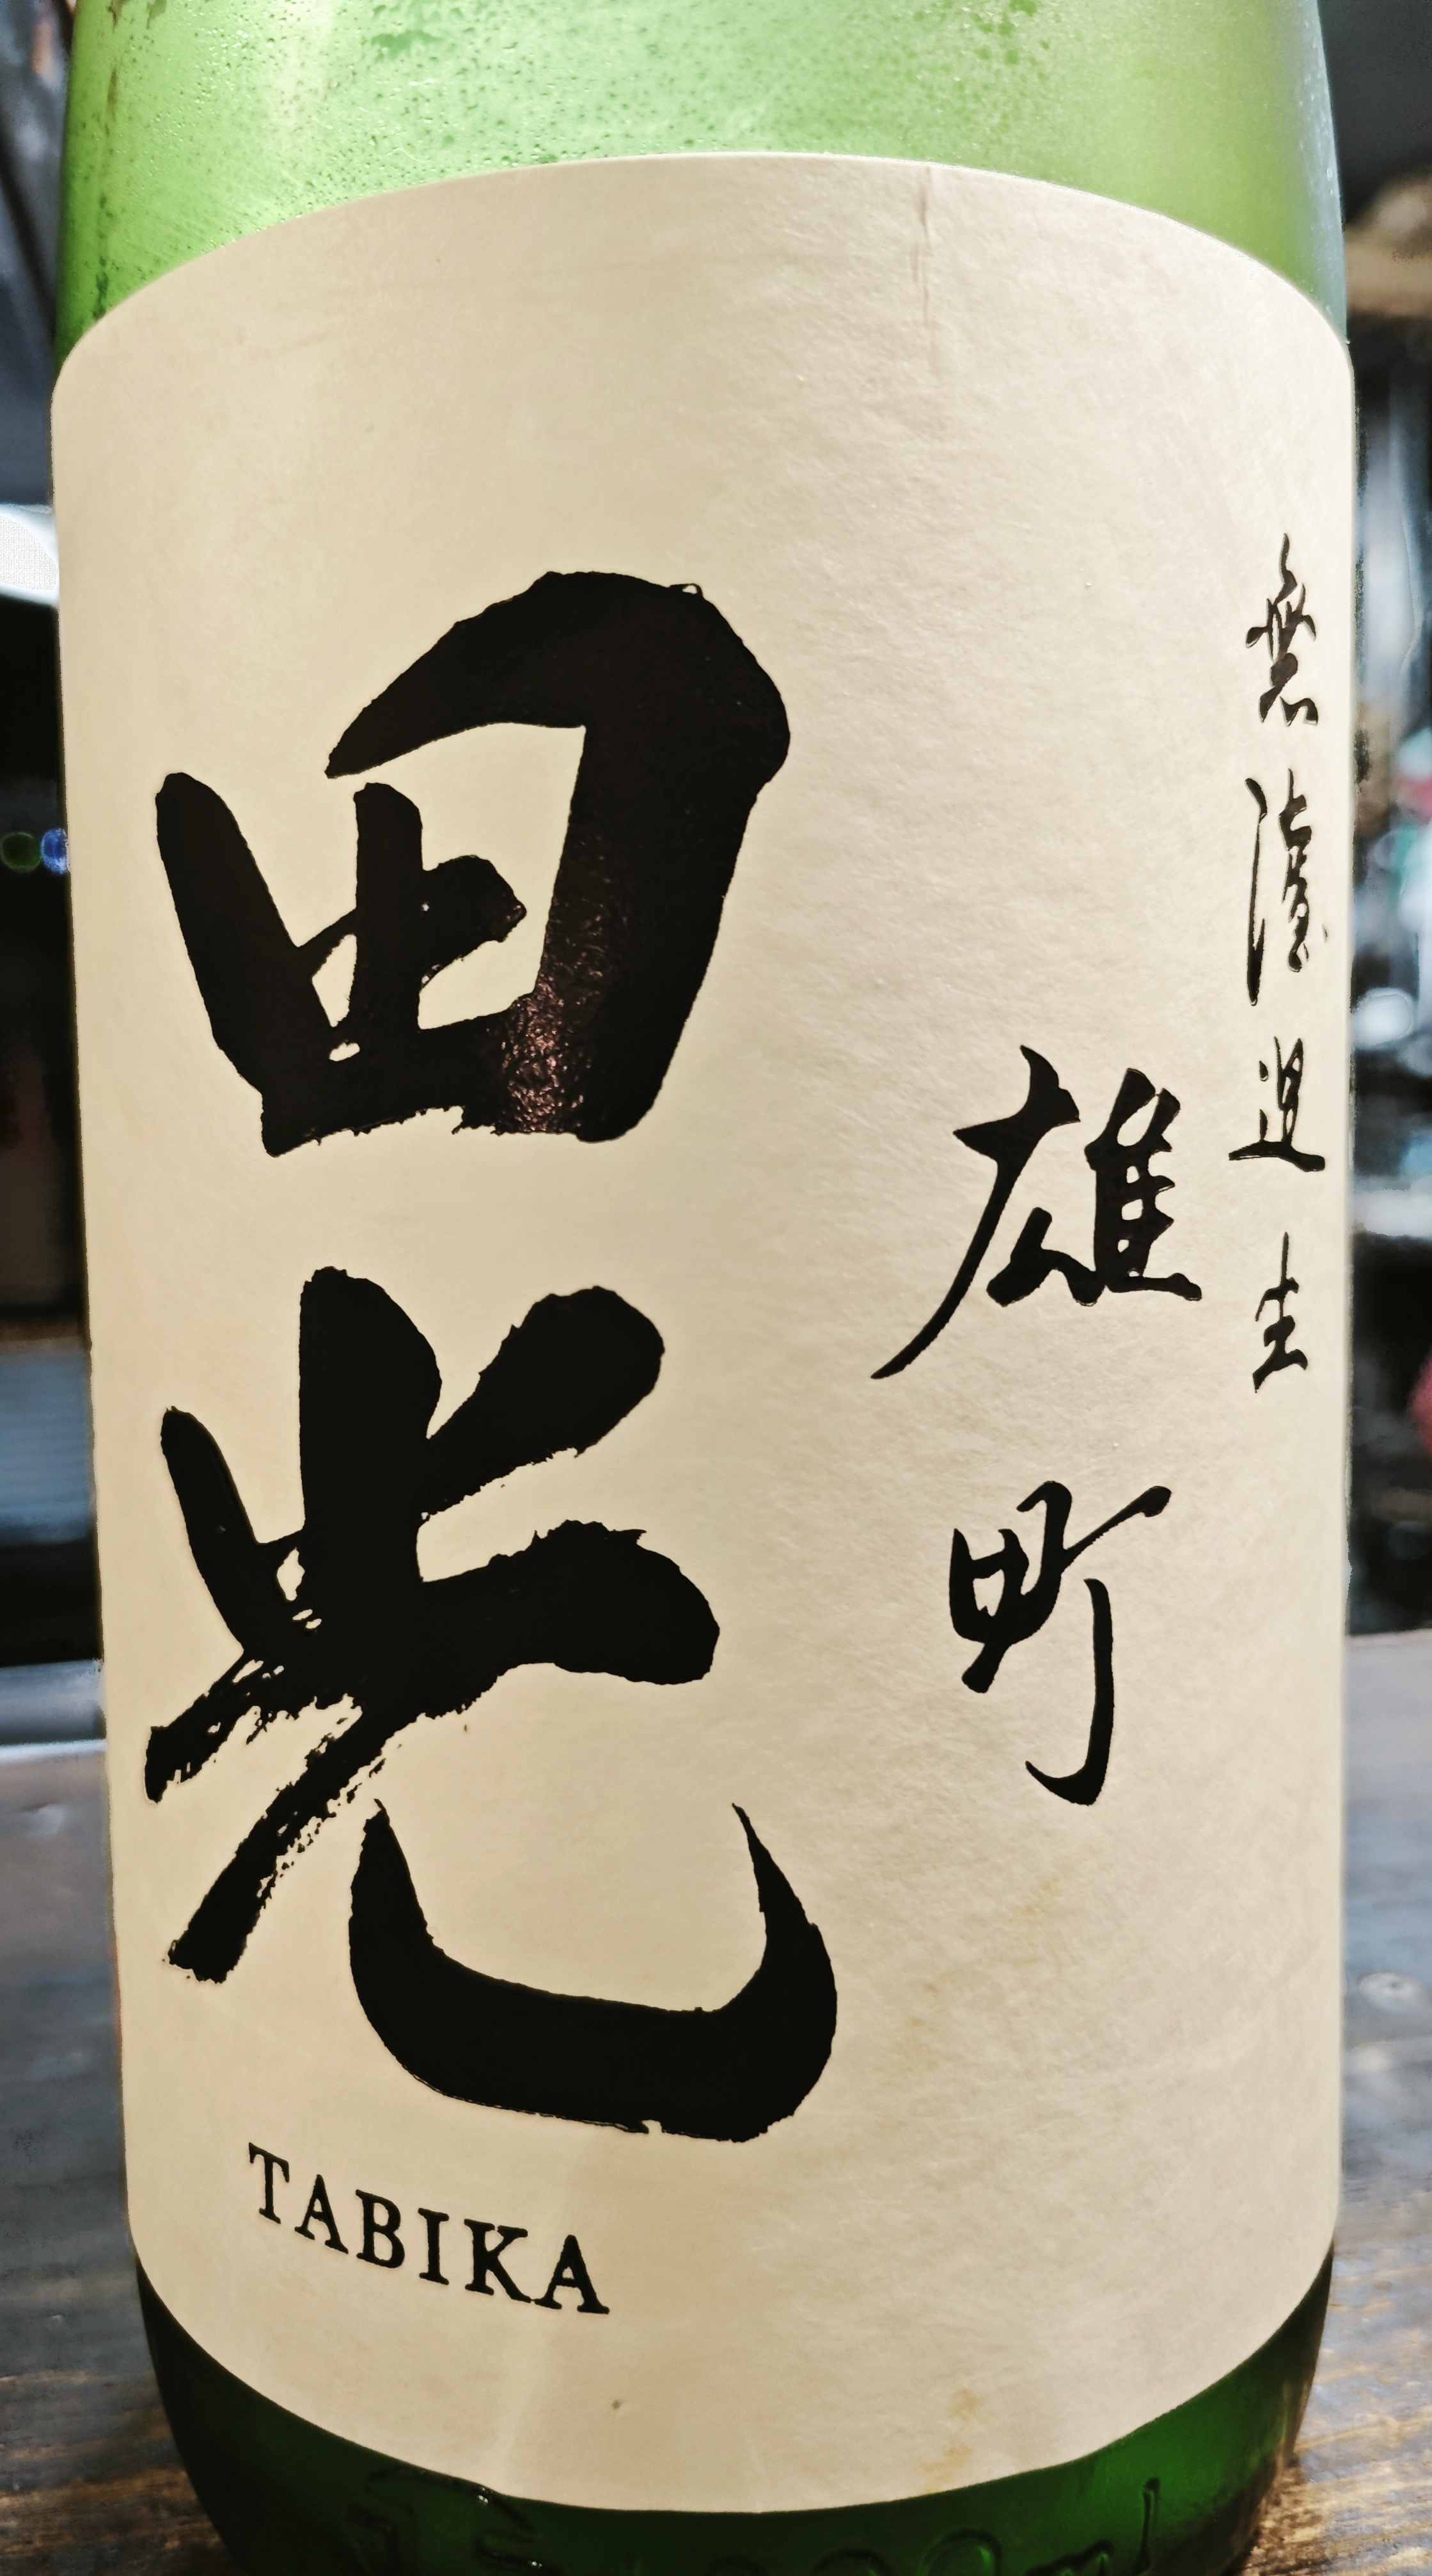 無濾過生
雄町
田光
TABIKA